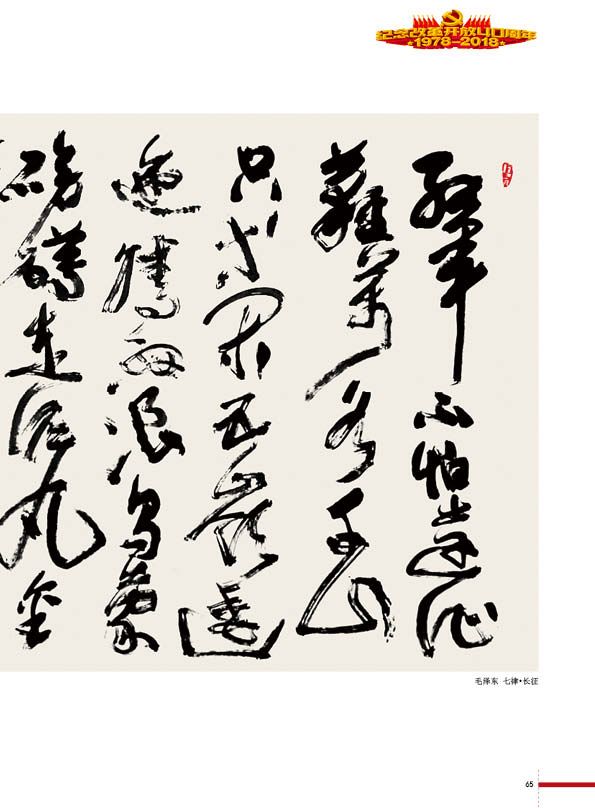 纪念改革开放40周年
1978-2018
紅軍不怕遠征
難萬水千山
只等閑五嶺逶
迤騰細浪烏蒙
磅礴走泥丸金
毛泽东 七律•长征
65